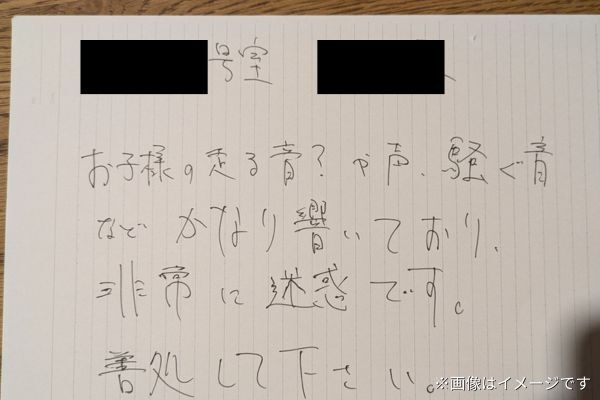 号室
お子様の走る音？や声、騒ぐ音
などかなり響いており、
非常に迷惑です。
善処して下さい。
※画像はイメージです